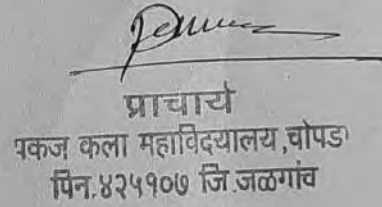 प्राचार्य
पकज कला महाविदयालय,चोपडा
पिन.४२५१०७ जि.जळगांव